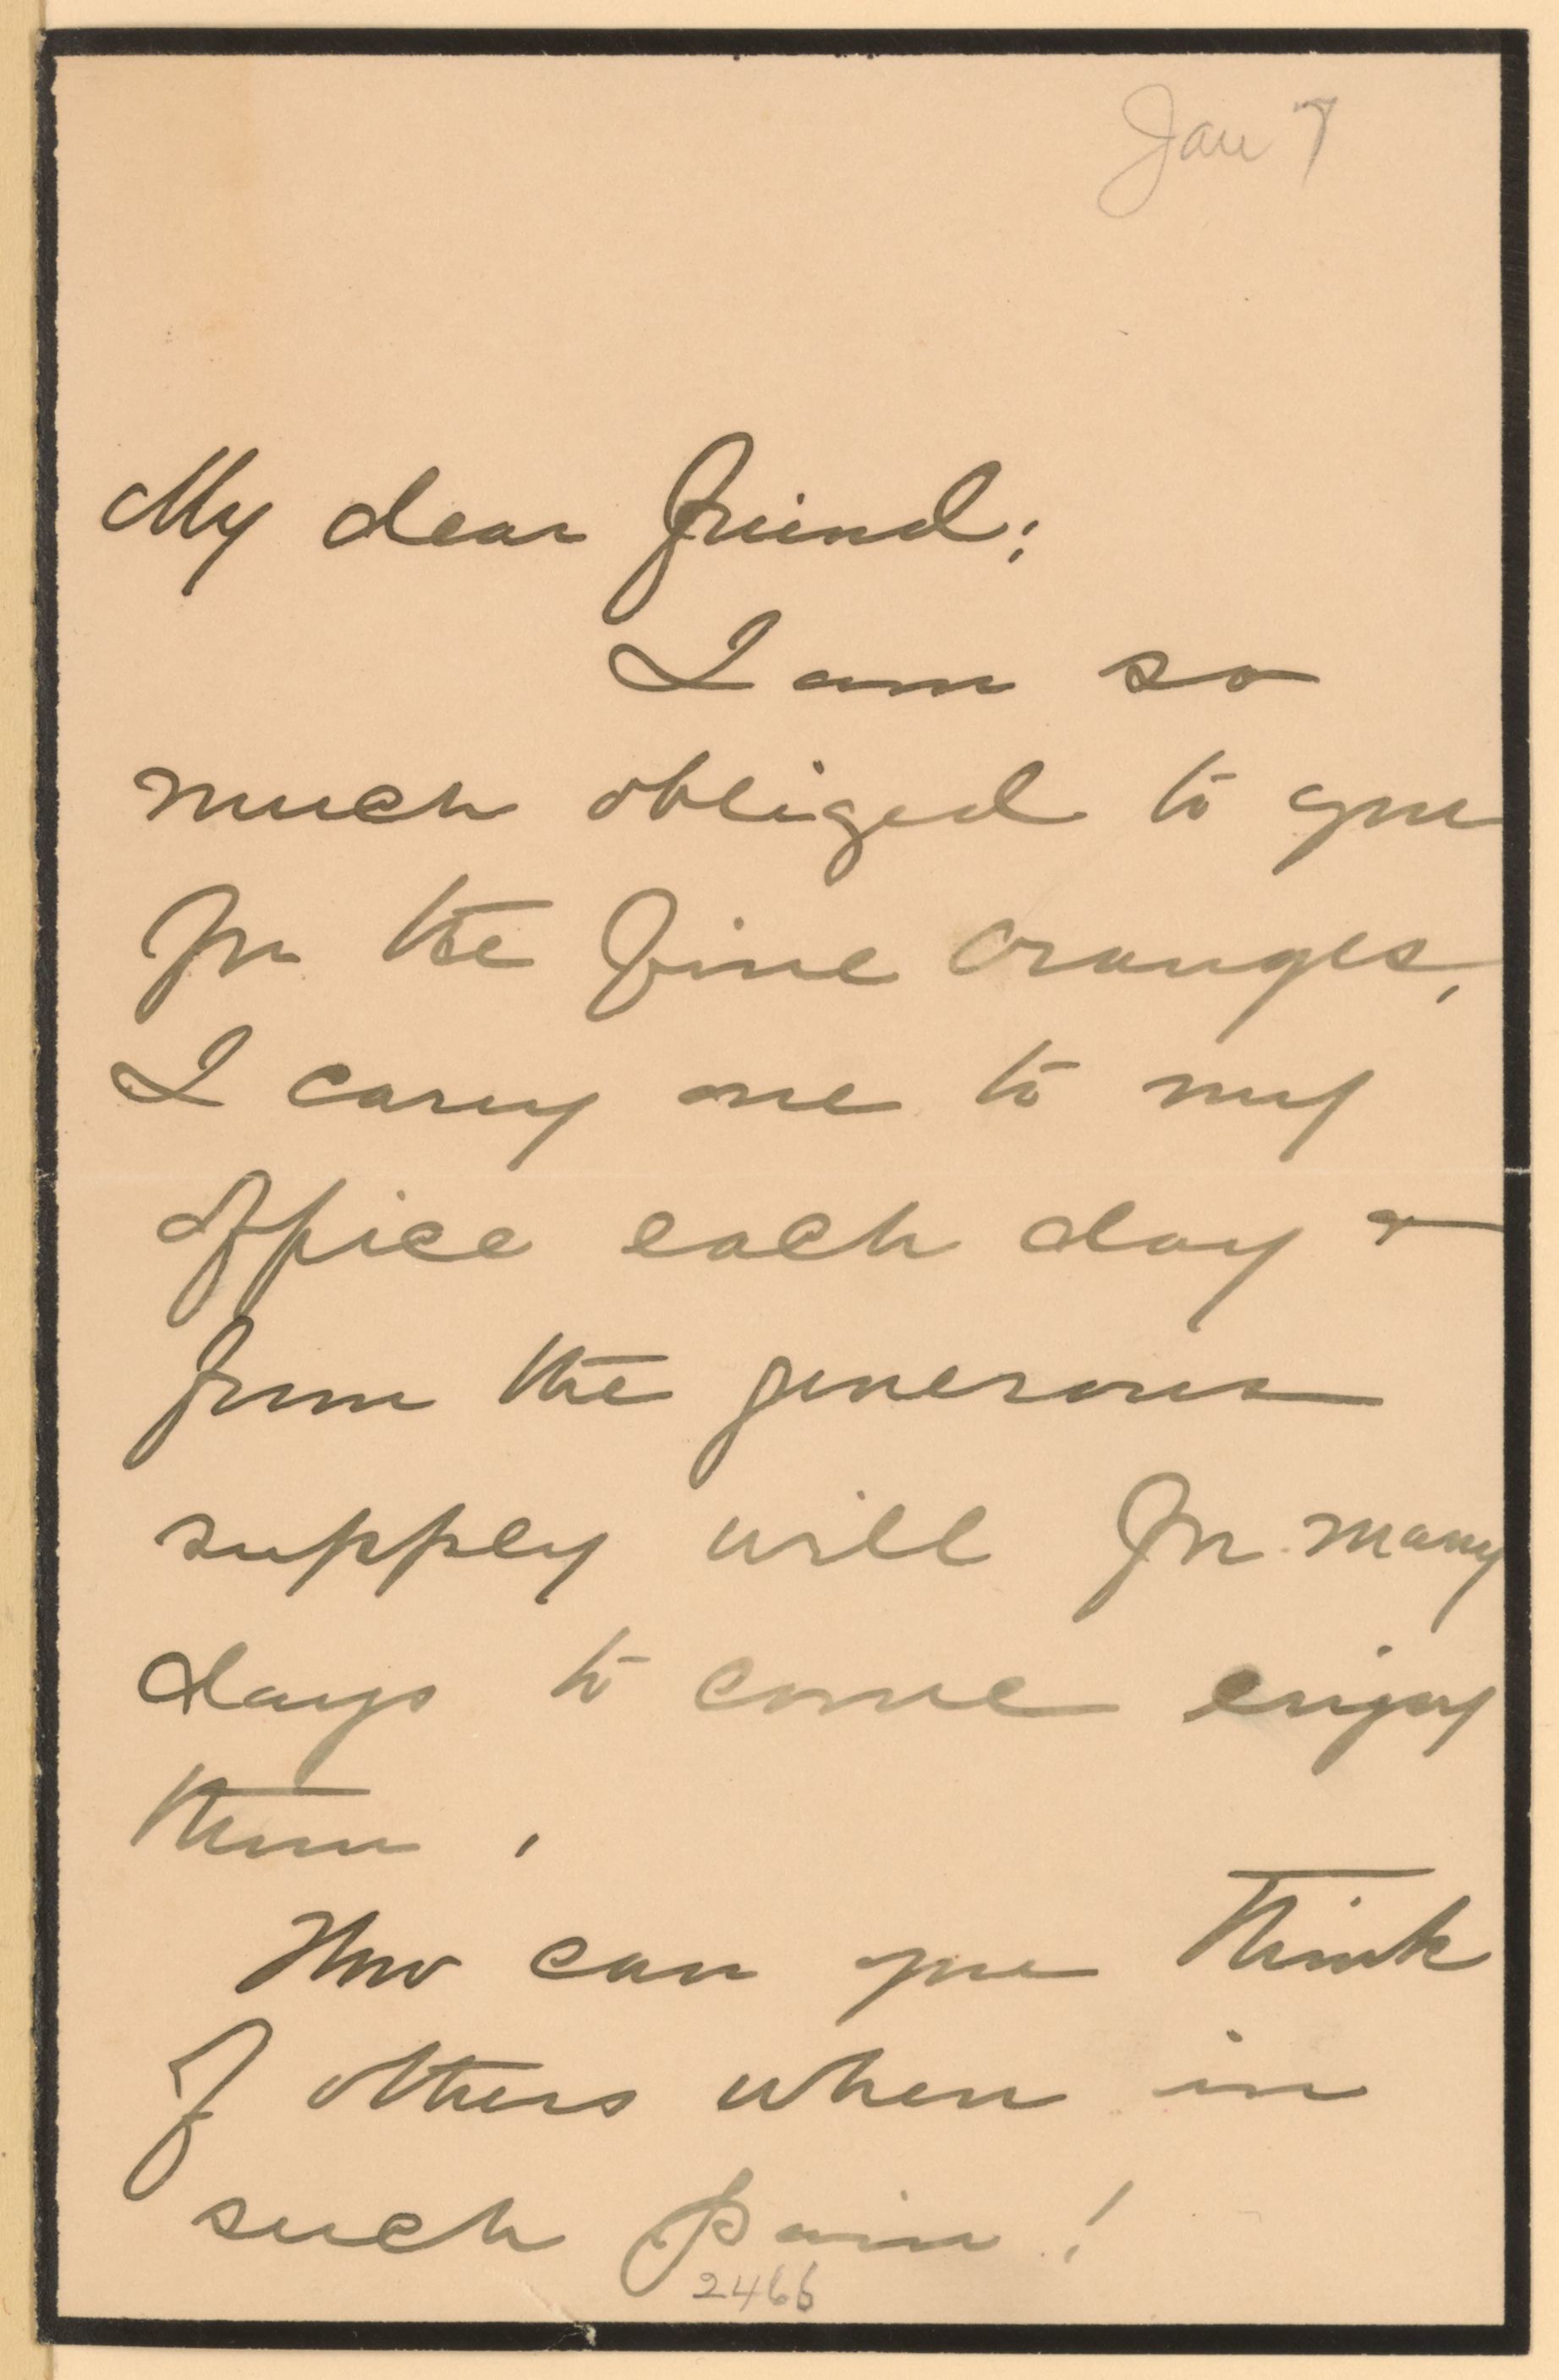 Jan 7
My dear friend;
I am so
much obliged to you
for the fine oranges,
I carry one to my
office each day &
from the generous
supply will for many
days to come enjoy
them.
How can you think
of others when in
such pain!
2466